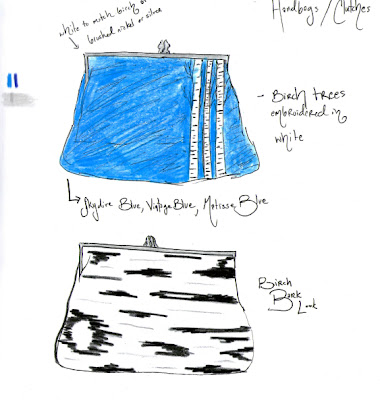 Handbags / Clutches
white to match birch or
brushed nickel or silver
- Birch trees
embroidered in
white
Skydive Blue, Vintage Blue, Matisse Blue
Birch
Bark
Look